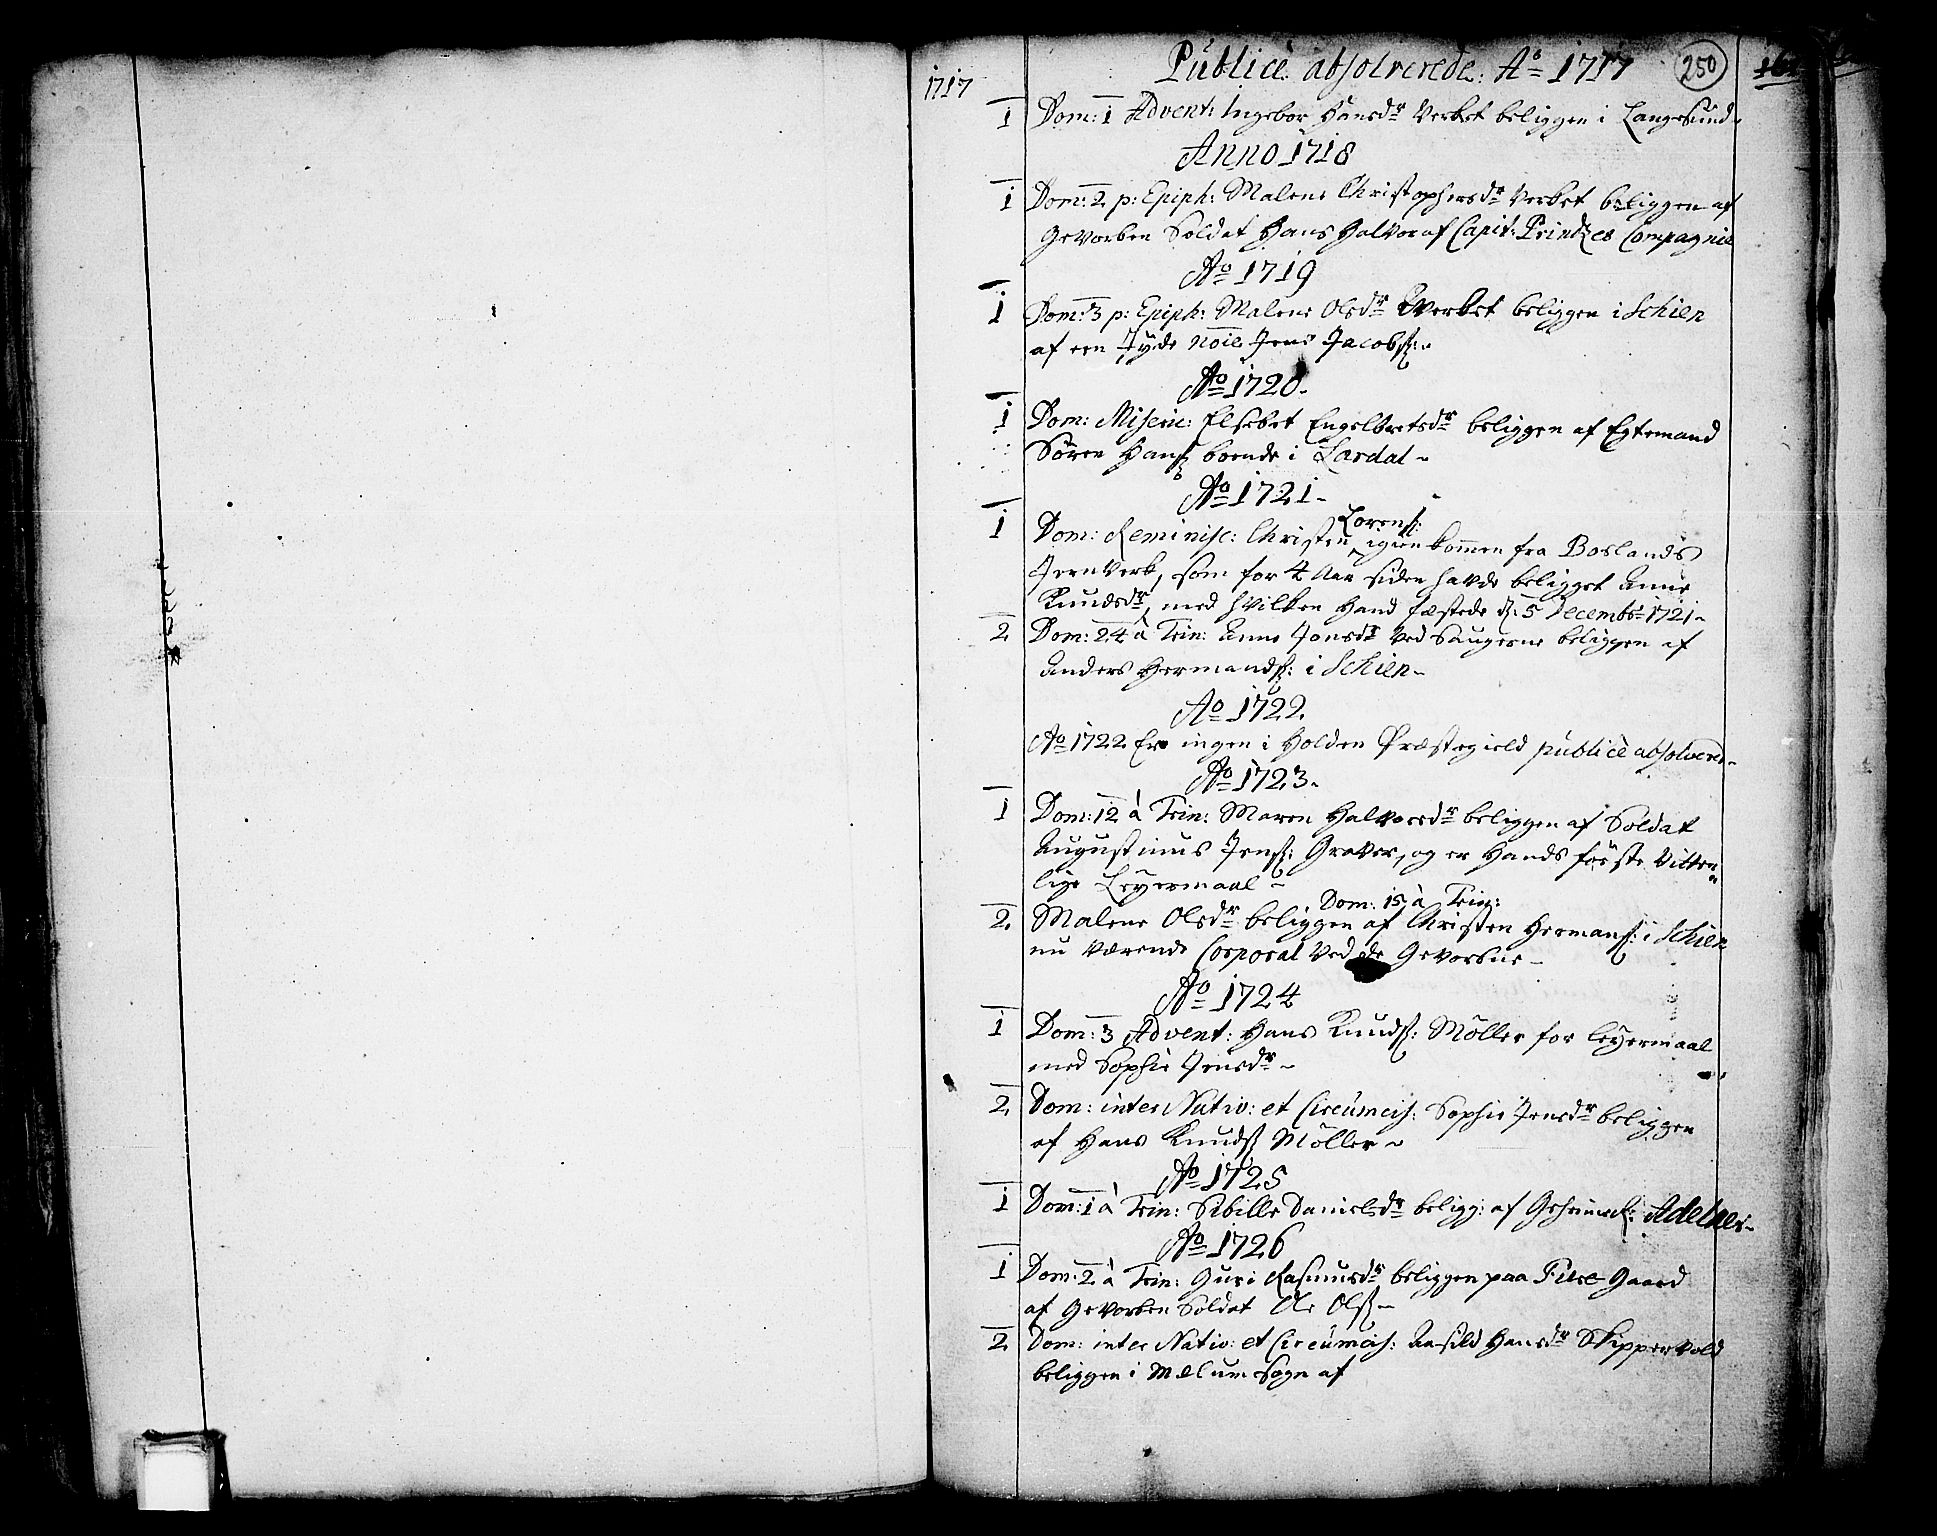 1717
Publicè absolverede: Aº 1717
250
1 Dom: 1 Advent: Ingebor Hansdr Verket beliggen i Langesund.
Anno 1718
1 Dom: 2 p: Epiph: Malene Christophersdr Verket beliggen af
Gevorben Soldat Hans Halvor af Capit: Printzes Compagnie
Aº 1719
1 Dom: 3 p: Epiph: Malene Olsdr Werket beliggen i Schien
af een Jyde noie Jens Jacobs:
Aº 1720
1 Dom: Miseric: Elsebet Engelbretsdr beliggen af Egtemand
Sören Hans boende i Lardal
Aº 1721
Lorens:
1 Dom: Reminisc: Christen igien kommen fra Boslands
Jernverk, som for 4 Aar siden havde beligget Anne
Knudsdr, med hvilken Hand fæstede d: 5 Decembr 1721
2 Dom: 24 à Trin: Anne Jonsdr ved Saugerne beliggen af
Anders Hermands: i Schien
Aº 1722
Aº 1722 Er ingen i Holden Præstegield publicè absolveret
Aº 1723
1 Dom: 12 à Trin: Maren Halvorsdr beliggen af Soldat
Augustinus Jens: Graver, og er Hands förste vitter
lige Leyermaal
Dom: 15 à Trin:
2 Malene Olsdr beliggen af Christen Hermans: i Schien
nu værende Corporal ved de Gevorbne
Aº 1724
1 Dom: 3 Advent: Hans Knuds: Möller for Leyermaal
med Sophie Jensdr
2 Dom: inter Nativ: et Circumcis: Sophie Jensdr beliggen
af Hans Knuds Möller
Aº 1725
1 Dom: 1 à Trin: Sibille Danielsdr beligg: af Geheimer: Adeler
Aº 1726
1 Dom: 2 à Trin: Guri Rasmusdr beliggen paa Gaard
af Gevorben Soldat Ole Ols
2 Dom: inter Nativ: et Circumcis: Aasild Hansdr Skippervold
beliggen i Melum Sogn af